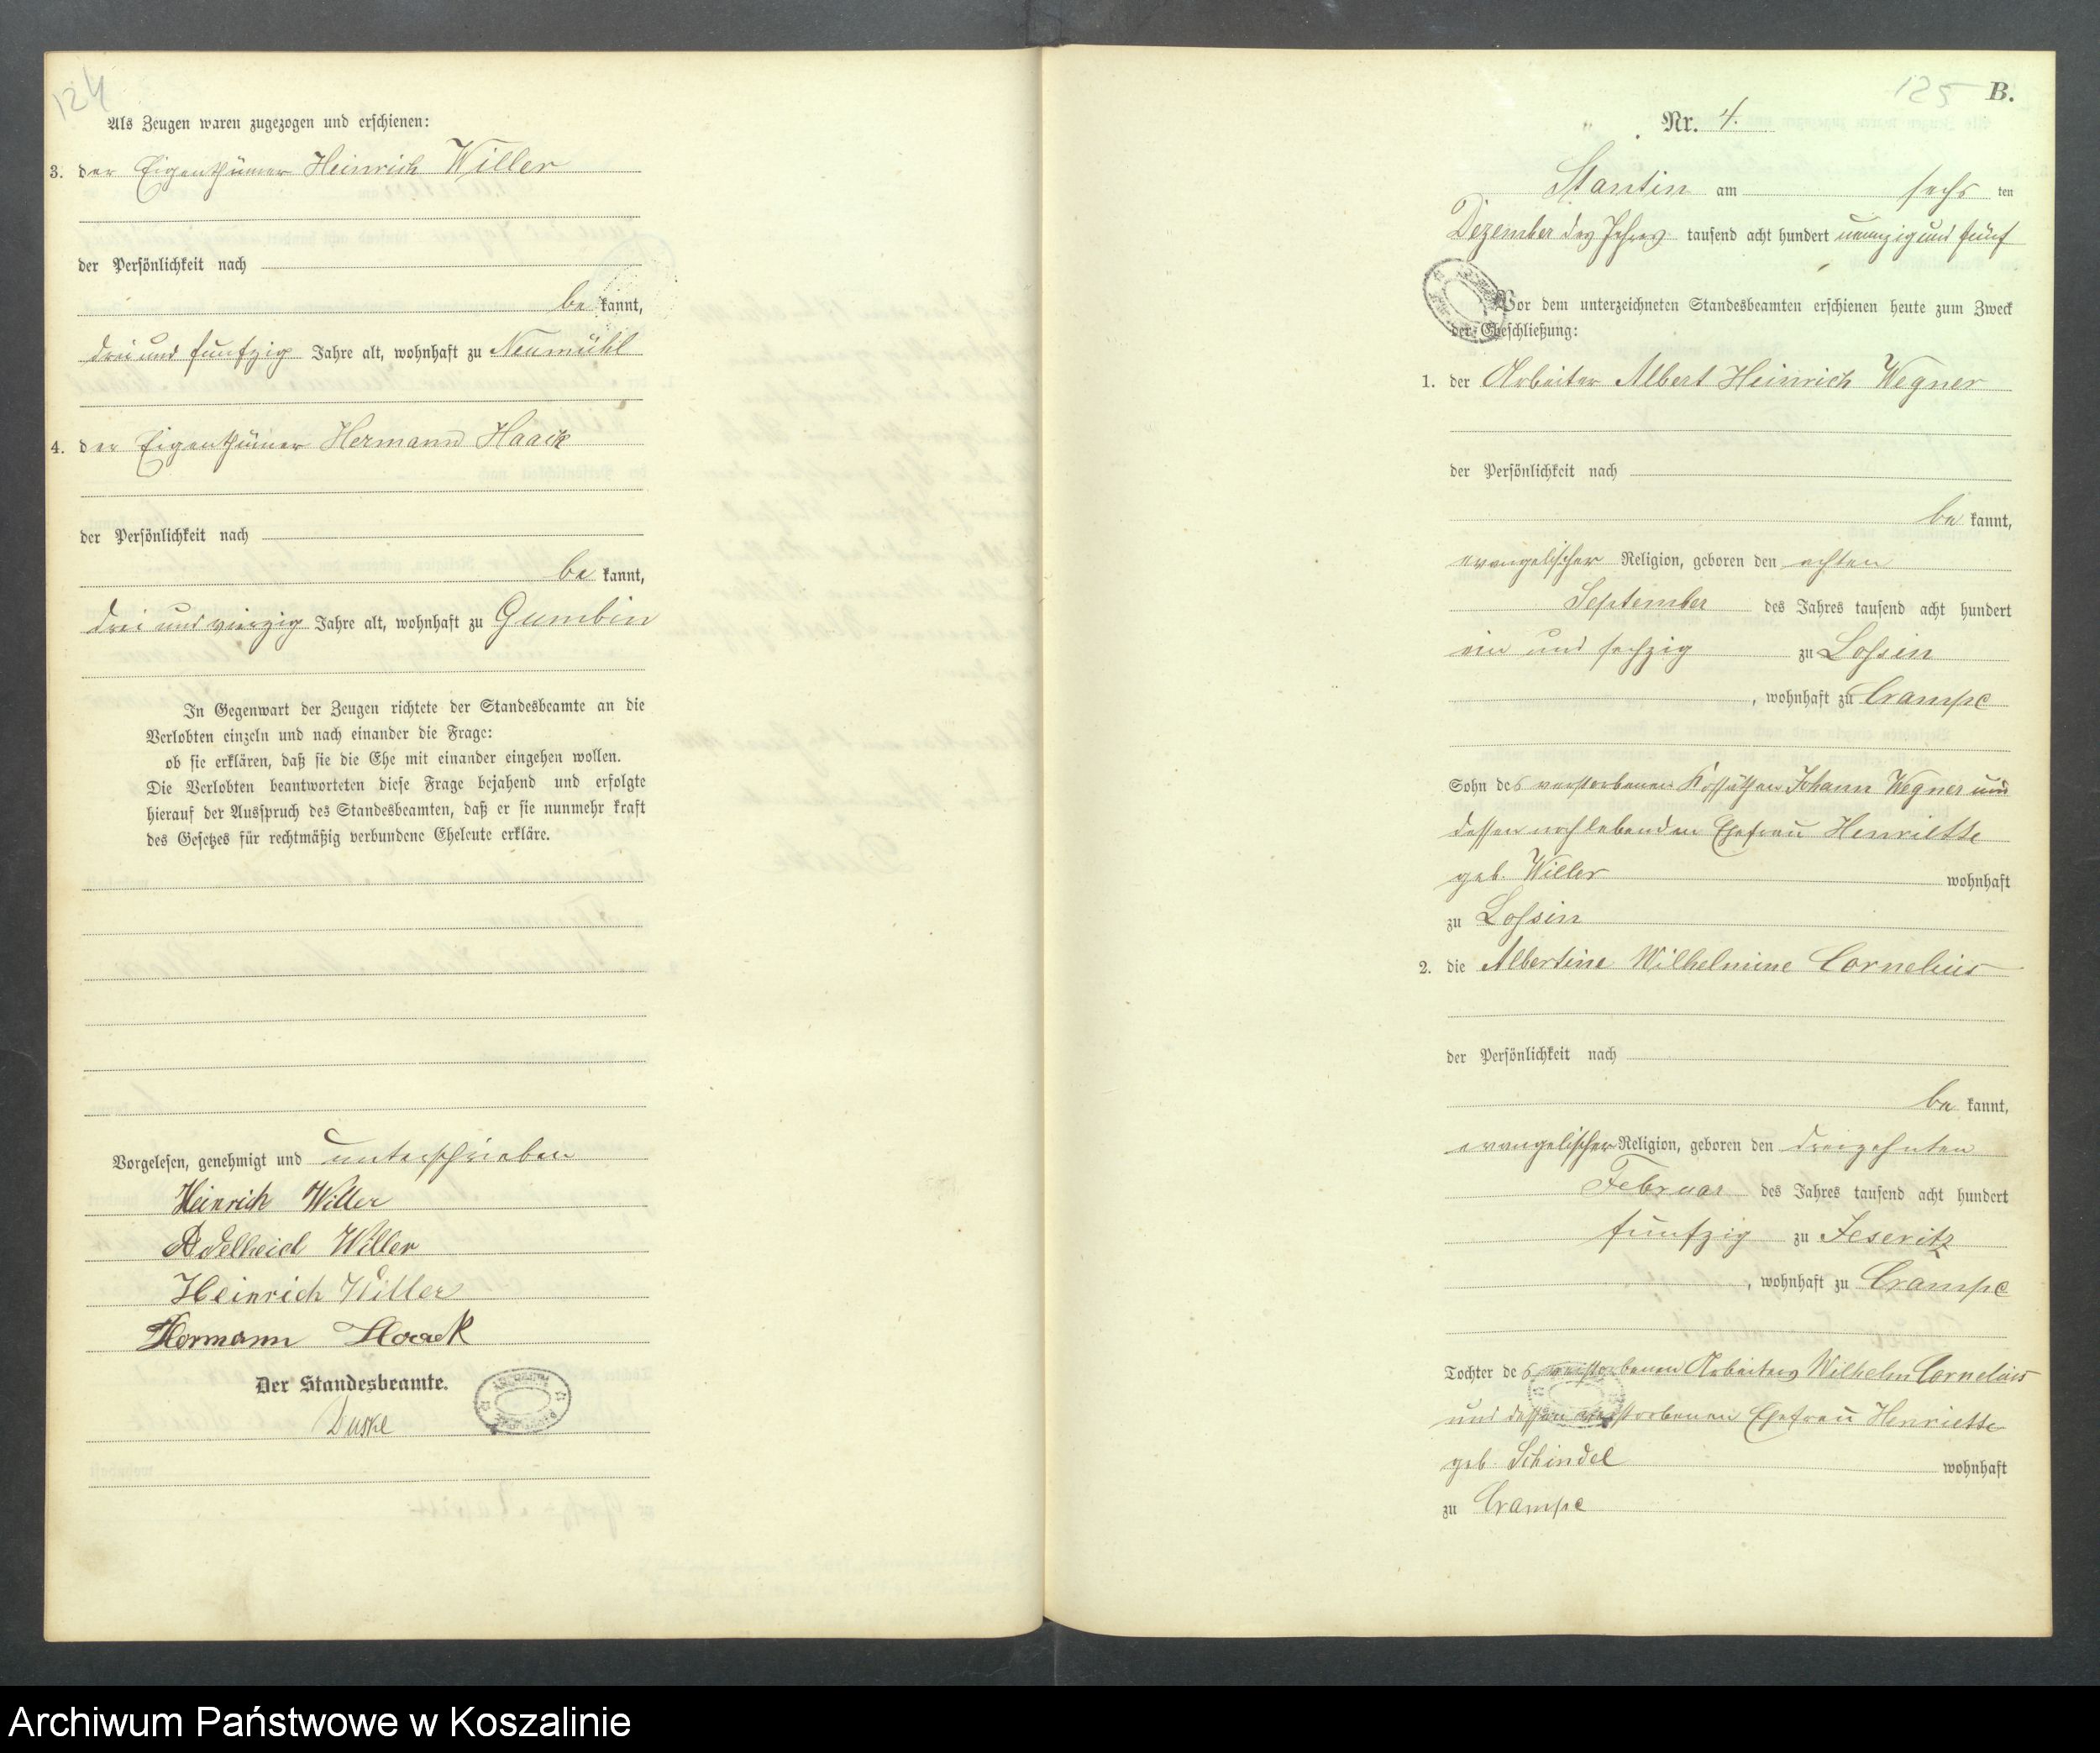 124
Als Zeugen waren zugezogen und erschienen:
3. der Eigenthümer Heinrich Willer
der Persönlichkeit nach
be kannt,
drei und funfzig Jahre alt, wohnhaft zu Neumühl
4. der Eigenthümer Hermann Haack
der Persönlichkeit nach
be kannt,
drei und vierzig Jahre alt, wohnhaft zu Gumbin
In Gegenwart der Zeugen richtete der Standesbeamte an die
Verlobten einzeln und nach einander die Frage:
ob sie erklären, daß sie die Ehe mit einander eingehen wollen.
Die Verlobten beantworteten diese Frage bejahend und erfolgte
hierauf der Ausspruch des Standesbeamten, daß er sie nunmehr kraft
des Gesetzes für rechtmäßig verbundene Eheleute erkläre.
Vorgelesen, genehmigt und unterschrieben
Heinrich Willer
Adelheid Willer
Heinrich Willer
Hermann Haack
Der Standesbeamte.
Duske
125
B.
Nr. 4.
Stantin am sechs ten
Dezember des Jahres tausend acht hundert neunzig und fünf
Vor dem unterzeichneten Standesbeamten erschienen heute zum Zweck
der Eheschließung:
1. der Arbeiter Albert Heinrich Wegner
der Persönlichkeit nach
be kannt,
evangelischer Religion, geboren den achten
September des Jahres tausend acht hundert
ein und sechzig zu Lossin
, wohnhaft zu Crampe
Sohn des verstorbenen Kossäthen Johann Wegner und
dessen noch lebenden Ehefrau Henriette
geb. Willer wohnhaft
zu Lossin
2. die Albertine Wilhelmine Cornelius
der Persönlichkeit nach
be kannt,
evangelischer Religion, geboren den dreizehnten
Februar des Jahres tausend acht hundert
funfzig zu Jeseritz
, wohnhaft zu Crampe
Tochter des verstorbenen Arbeiters Wilhelm Cornelius
und dessen verstorbenen Ehefrau Henriette
geb. Schindel wohnhaft
zu Crampe
Archiwum Państwowe w Koszalinie